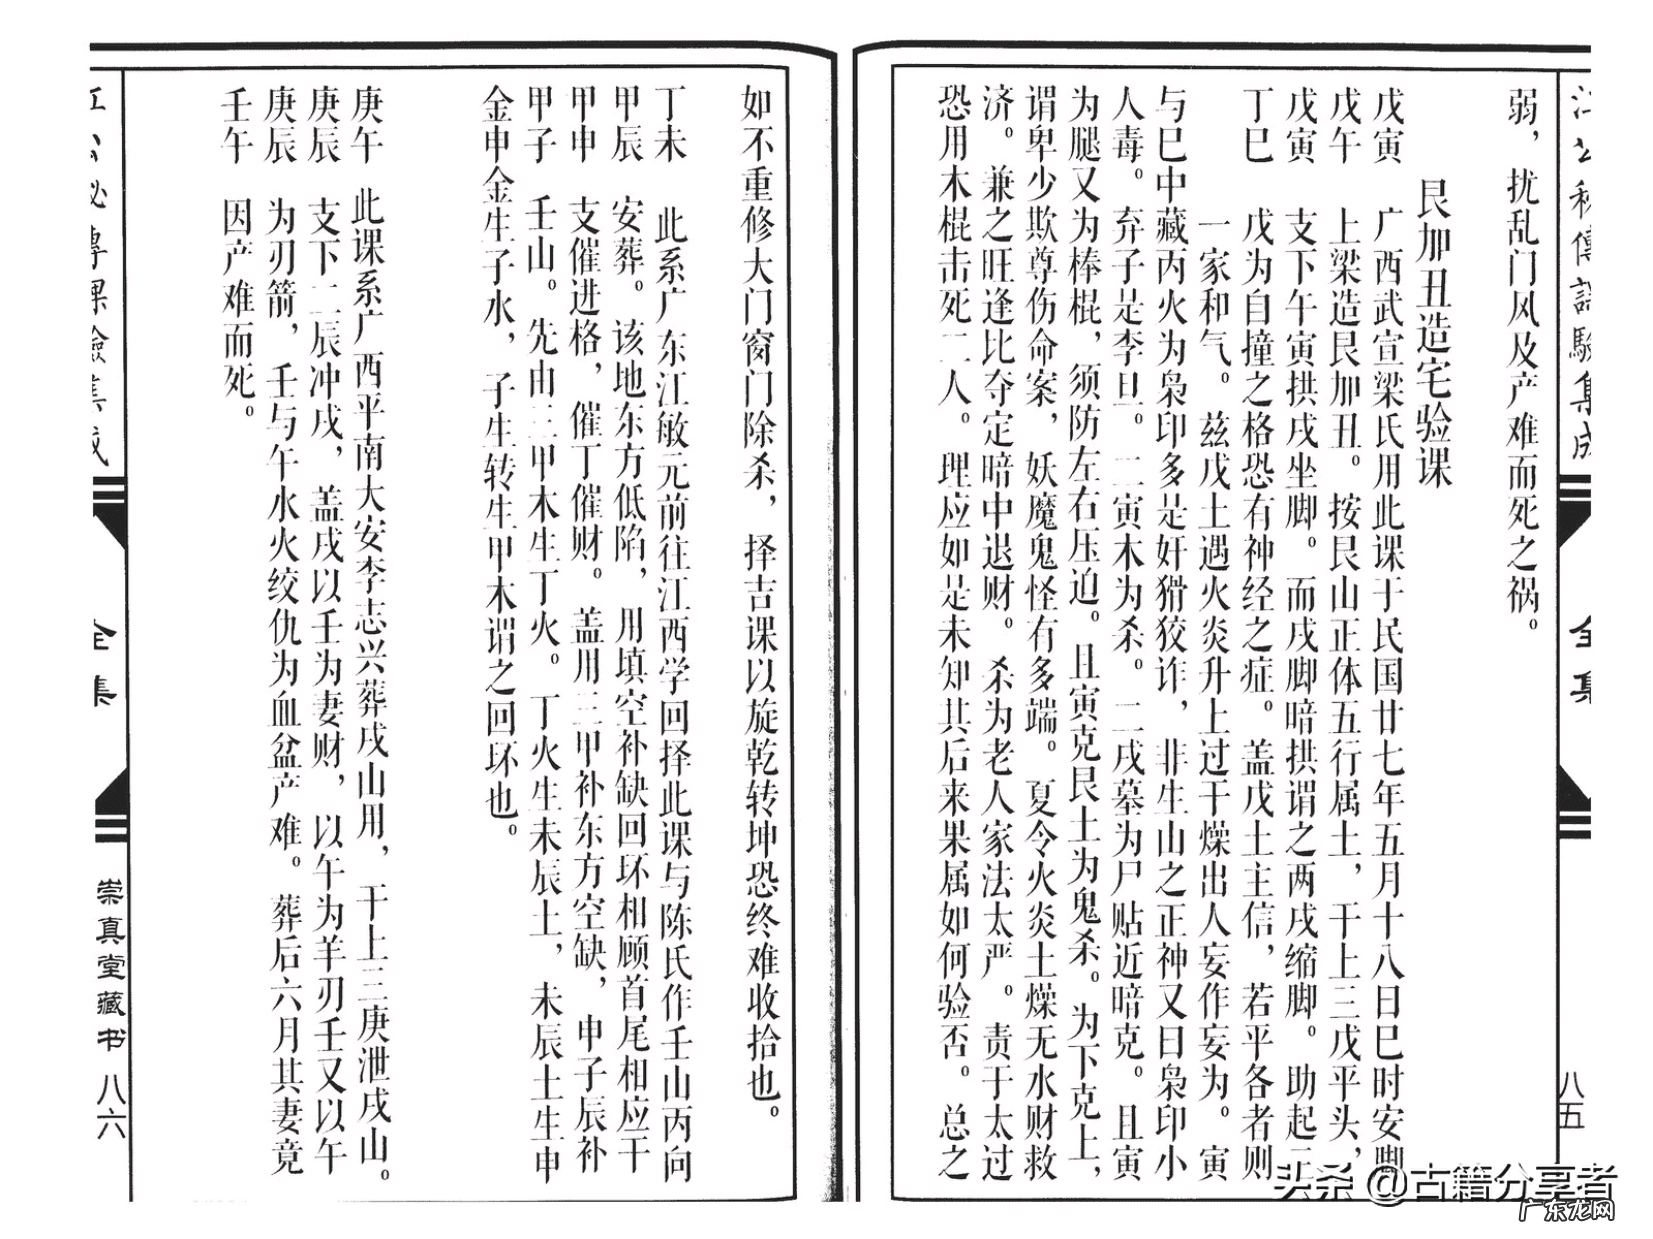 江公秘傳課驗集成
全集
八五
弱，扰乱门风及产难而死之祸。
艮加丑造宅验课
戊寅　广西武宣梁氏用此课于民国廿七年五月十八日巳时安脚
戊午　上梁造艮加丑。按艮山正体五行属土，干上三戊平头，
戊寅　支下午寅拱戌坐脚。而戌脚暗拱谓之两戌缩脚。助起三
丁巳　戊为自撞之格恐有神经之症。盖戊土主信，若平各者则
一家和气。兹戊土遇火炎升上过干燥出人妄作妄为。寅
与巳中藏丙火为枭印多是奸猾狡诈，非生山之正神又曰枭印小
人毒。弃子是李旦。二寅木为杀。二戌墓为尸贴近暗克。且寅
为腿又为棒棍，须防左右压迫。且寅克艮土为鬼杀。为下克上，
谓卑少欺尊伤命案，妖魔鬼怪有多端。夏令火炎土燥无水财救
济。兼之旺逢比夺定暗中退财。杀为老人家法太严。责于太过
恐用木棍击死二人。理应如是未知其后来果属如何验否。总之
如不重修大门窗门除杀，择吉课以旋乾转坤恐终难收拾也。
丁未　此系广东江敏元前往江西学回择此课与陈氏作壬山丙向
甲辰　安葬。该地东方低陷，用填空补缺回环相顾首尾相应干
甲申　支催进格，催丁催财。盖用三甲补东方空缺，申子辰补
甲子　壬山。先由三甲木生丁火。丁火生未辰土，未辰土生申
金申金生子水，子生转生甲木谓之回环也。
庚午　此课系广西平南大安李志兴葬戌山用，干上三庚泄戌山。
庚辰　支下二辰冲戌，盖戌以壬为妻财，以午为羊刃壬又以午
庚辰　为刃箭，壬与午水火绞仇为血盆产难。葬后六月其妻竟
壬午　因产难而死。
江公秘傳課驗集成
全集
崇真堂藏书
八六
头杀 @古籍分享者
广东龙网